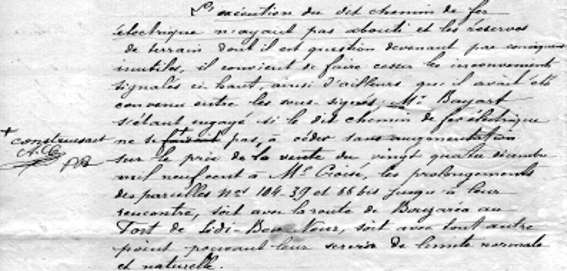 L'exécution du dit chemin de fer
électrique n'ayant pas abouti et les réserves
de terrain dont il est question devenant par conséquent
inutiles, il convient de faire cesser les inconvénients
signalés en haut, ainsi d'ailleurs qu'il avait été
convenu entre les sous-signés, Mr Bayart
s'étant engagé si le dit chemin de fer électrique
+ construisait
ne se faisait pas, à céder sans augmentation
sur le prix de la vente du vingt quatre décembre
mil neuf cent à Mr Croise, les prolongements
des parcelles Nos 104-39 et 55 bis jusqu'à leur
rencontre, soit avec la route de Bouzaréa au
Fort de Sidi-Ben-Nour, soit avec tout autre
point pouvant leur servir de limite normale
et naturelle.